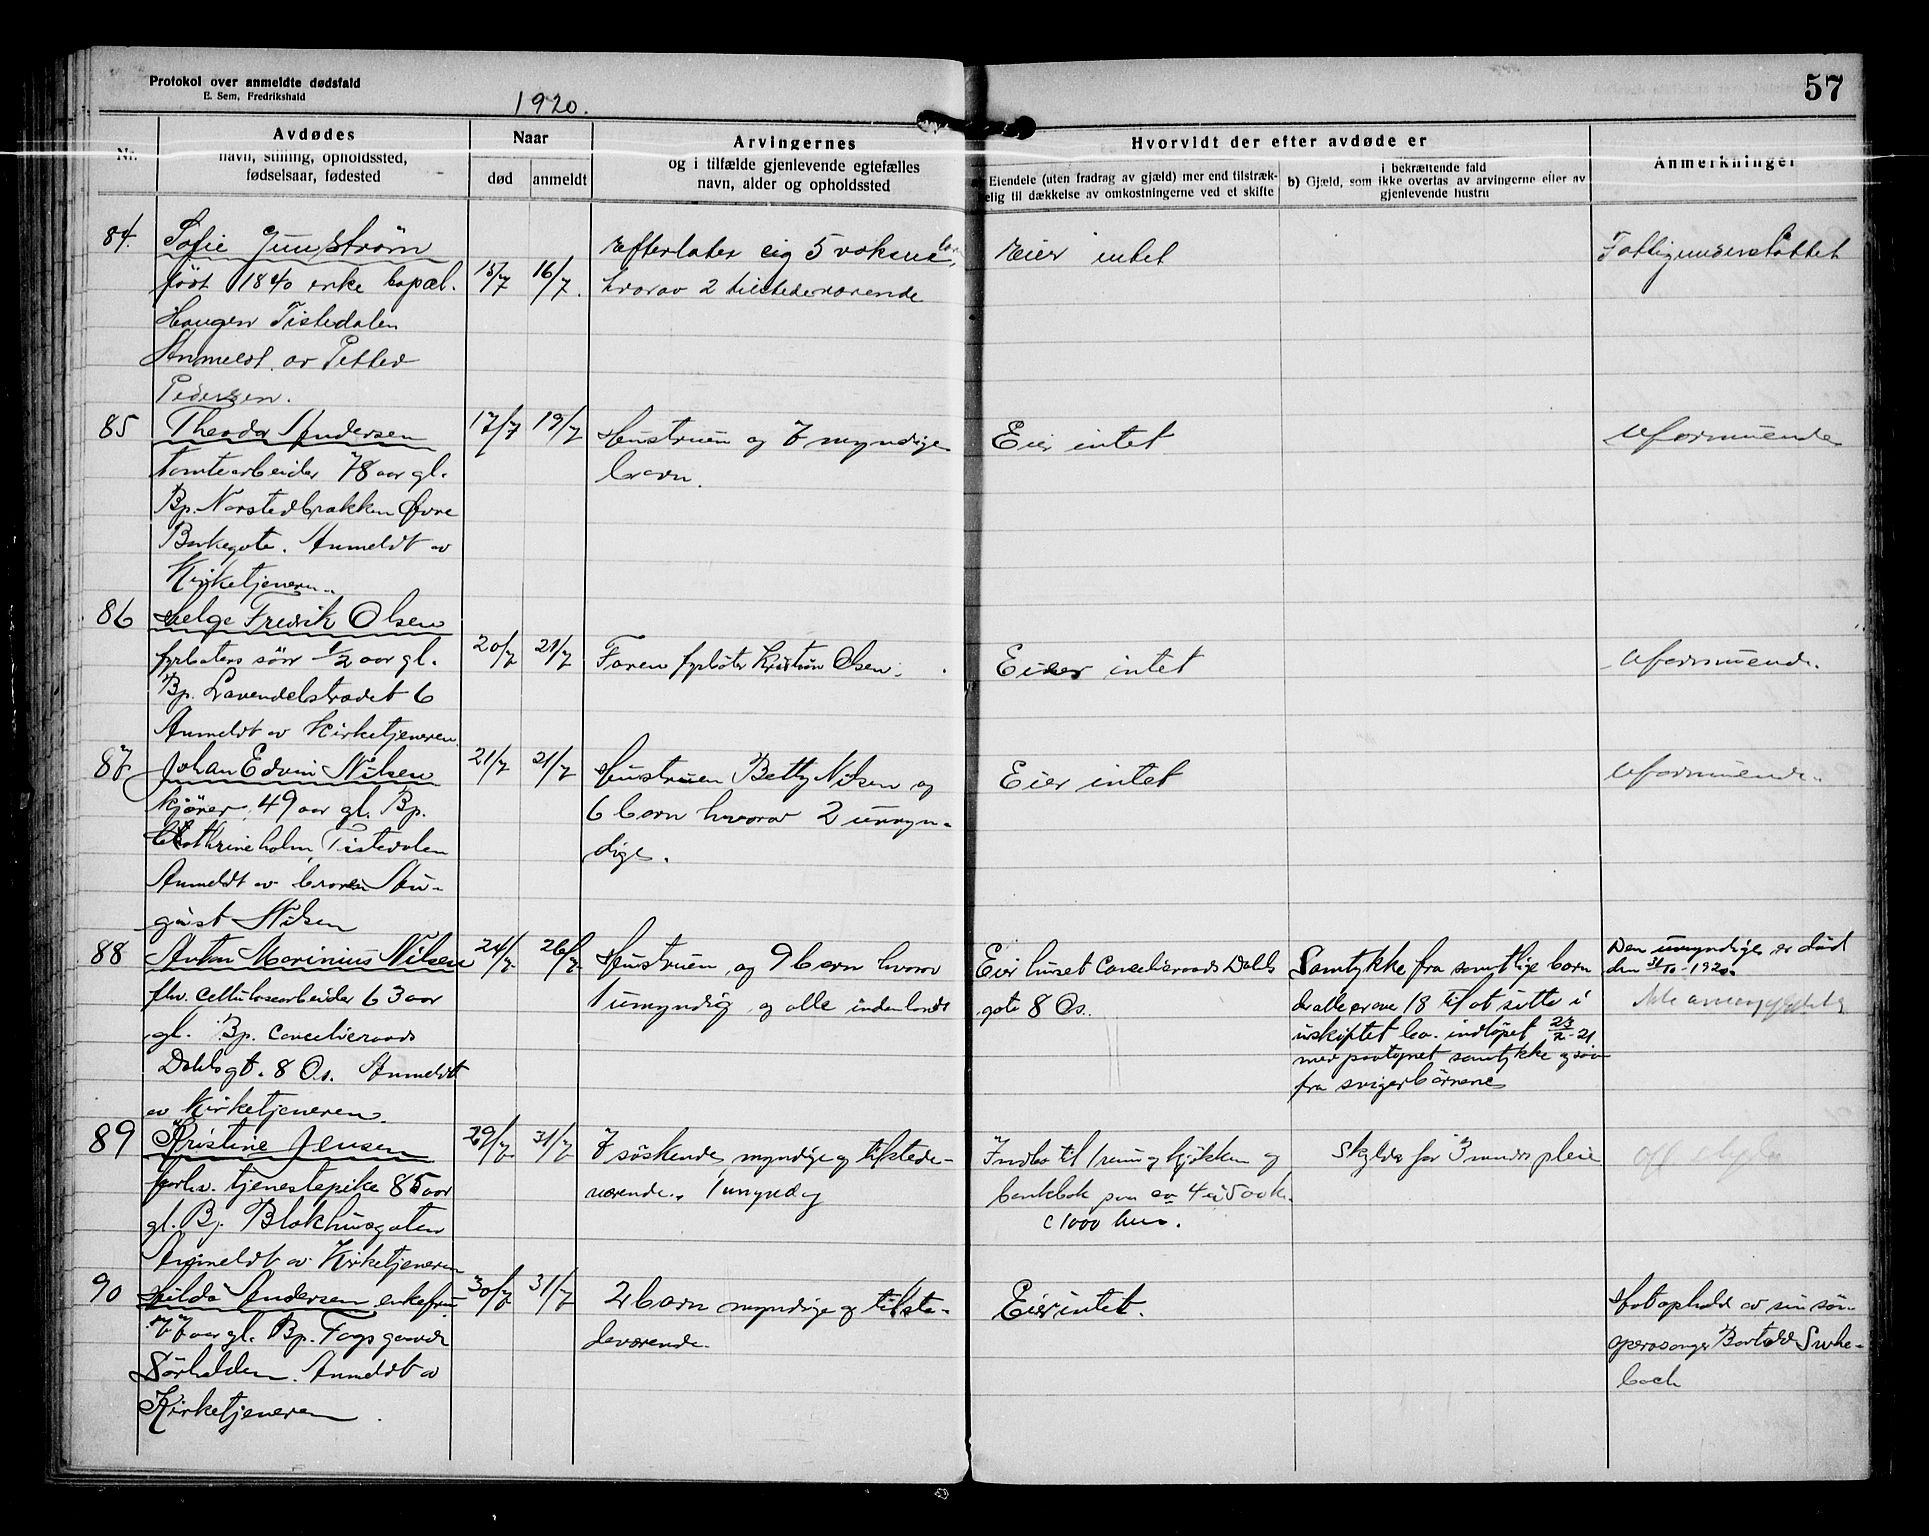 Protokol over anmeldte dødsfald
E. Sem, Fredrikshald
1920.
57
Nr.
Avdødes
navn, stilling, opholdssted,
fødselsaar, fødested
Naar
død
anmeldt
Arvingernes
og i tilfælde gjenlevende egtefælles
navn, alder og opholdssted
Hvorvidt der efter avdøde er
Eiendele (uten fradrag av gjæld) mer end tilstræk-
elig til dækkelse av omkostningerne ved et skifte
i bekræftende fald
b) Gjæld, som ikke overtas av arvingerne eller av
gjenlevende hustru
Anmerkninger
84.
Sofie
født 1840 enke bopæl.
Haugen Tistedalen
Anmeldt av Petter
Pedersen.
15/7
16/7.
Efterlater sig 5 voksne
hvorav 2 tilstedeværende
Eier intet
Fattigunderstøttet
85
Theodor Andersen
Tomtearbeider 78 aar gl.
Bp. Norstedbrakken Øvre
Bankegate. Anmeldt av
Kirketjeneren.
17/7
19/7
Hustruen og 7 myndige
barn.
Eier intet
Uformuende
86
Helge Fredrik Olsen
fyrbøters søn 1/2 aar gl.
Bp. Lavendelstrædet 6
Anmeldt av Kirketjeneren.
20/7
21/7
Faren fyrbøter Kristian Olsen.
Eier intet
Uformuende.
87
Johan Edvin Nilsen
kjører, 49 aar gl. Bp.
Cathrineholm, Tistedalen
Anmeldt av broren Au-
gust Nilsen
21/7
21/7
Hustruen Betty Nilsen og
6 barn hvorav 2 umyn-
dige.
Eier intet
Uformuende.
88
Anton Marinius Nilsen
fhv. cellulosearbeider 63 aar
gl. Bp. Cancelieraads
Dahlsgt. 8 Os. Anmeldt
av Kirketjeneren.
24/7
26/7
Hustruen og 9 barn hvorav
1 umyndig og alle indenlands
Eier huset Cancelieraads Dahls
gate 8 Os.
Samtykke fra samtlige barn
der alle er over 18 til at sitte i
uskiftet bo. indløpet 23/2-21
med paategnet samtykke ogsaa
fra svigerbørnene
Den umyndige er død
den 31/10-1920
89
Kristine Jensen
forhv. tjenestepike 85 aar
gl. Bp. Blokhusgaten
Anmeldt av Kirketjeneren
29/7
31/7
7 søskende, myndige og tilstede-
værende. 1 umyndig
Indbo til 1 rum og kjøkken og
bankbok paa ca 4 a 500 kr.
c 1000 hus.
Skylder for 3 mnds pleie
90
Hilda Andersen enkefru
77 aar gl. Bp.
Sørhalden. Anmeldt av
Kirketjeneren.
30/7
31/7
2 barn myndige og tilste-
deværende.
Eier intet.
Hat ophold av sin søn
operasanger
bach